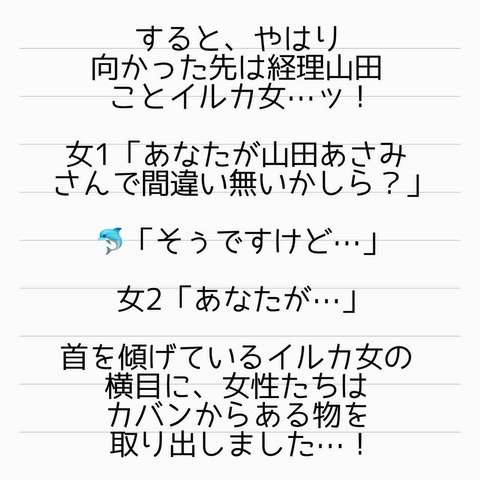 すると、やはり
向かった先は経理山田
ことイルカ女…ッ！
女1「あなたが山田あさみ
さんで間違い無いかしら？」
🐬「そぅですけど…」
女2「あなたが…」
首を傾げているイルカ女の
横目に、女性たちは
カバンからある物を
取り出しました…！